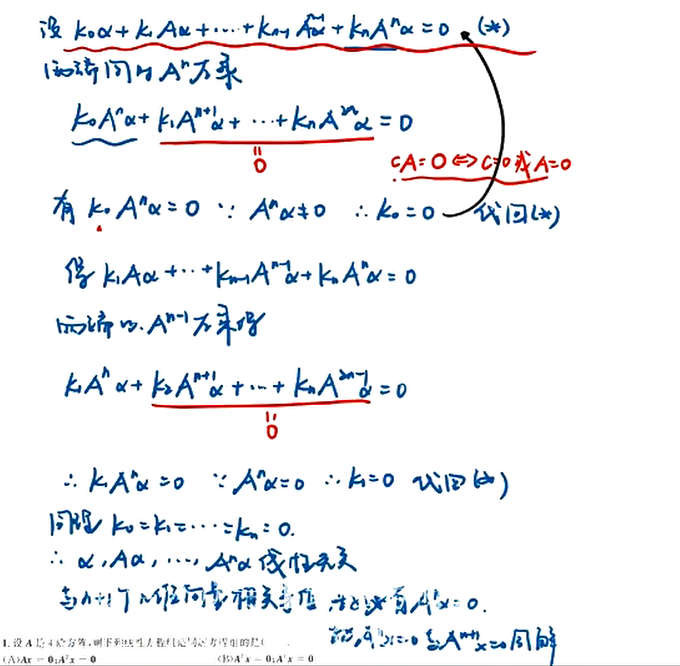 设 k₀α + k₁Aα + ⋯ + kₙ₋₁Aⁿ⁻¹α + kₙAⁿα = 0 (*)
两端同时Aⁿ左乘
k₀Aⁿα + k₁Aⁿ⁺¹α + ⋯ + kₙA²ⁿα = 0
0
cA = 0 ⇔ c=0 或 A=0
有 k₀Aⁿα = 0 ∵ Aⁿα ≠ 0 ∴ k₀ = 0 代回(*)
得 k₁Aα + ⋯ + kₙ₋₁Aⁿ⁻¹α + kₙAⁿα = 0
两端以 Aⁿ⁻¹左乘得
k₁Aⁿα + k₂Aⁿ⁺¹α + ⋯ + kₙA²ⁿ⁻¹α = 0
0
∴ k₁Aⁿα = 0 ∵ Aⁿα = 0 ∴ k₁ = 0 代回(*)
同理 k₀ = k₁ = ⋯ = kₙ = 0.
∴ α, Aα, ⋯, Aⁿα 线性无关
与 n+1个n维向量相关矛盾 有Aⁿα = 0.
Aⁿx=0与Aⁿ⁺¹x=0同解
1. 设 A 是 4 阶方阵,则下列线性方程组是同解方程组的是(
(A)Ax = 0;A²x = 0 (B)A²x = 0;A³x = 0